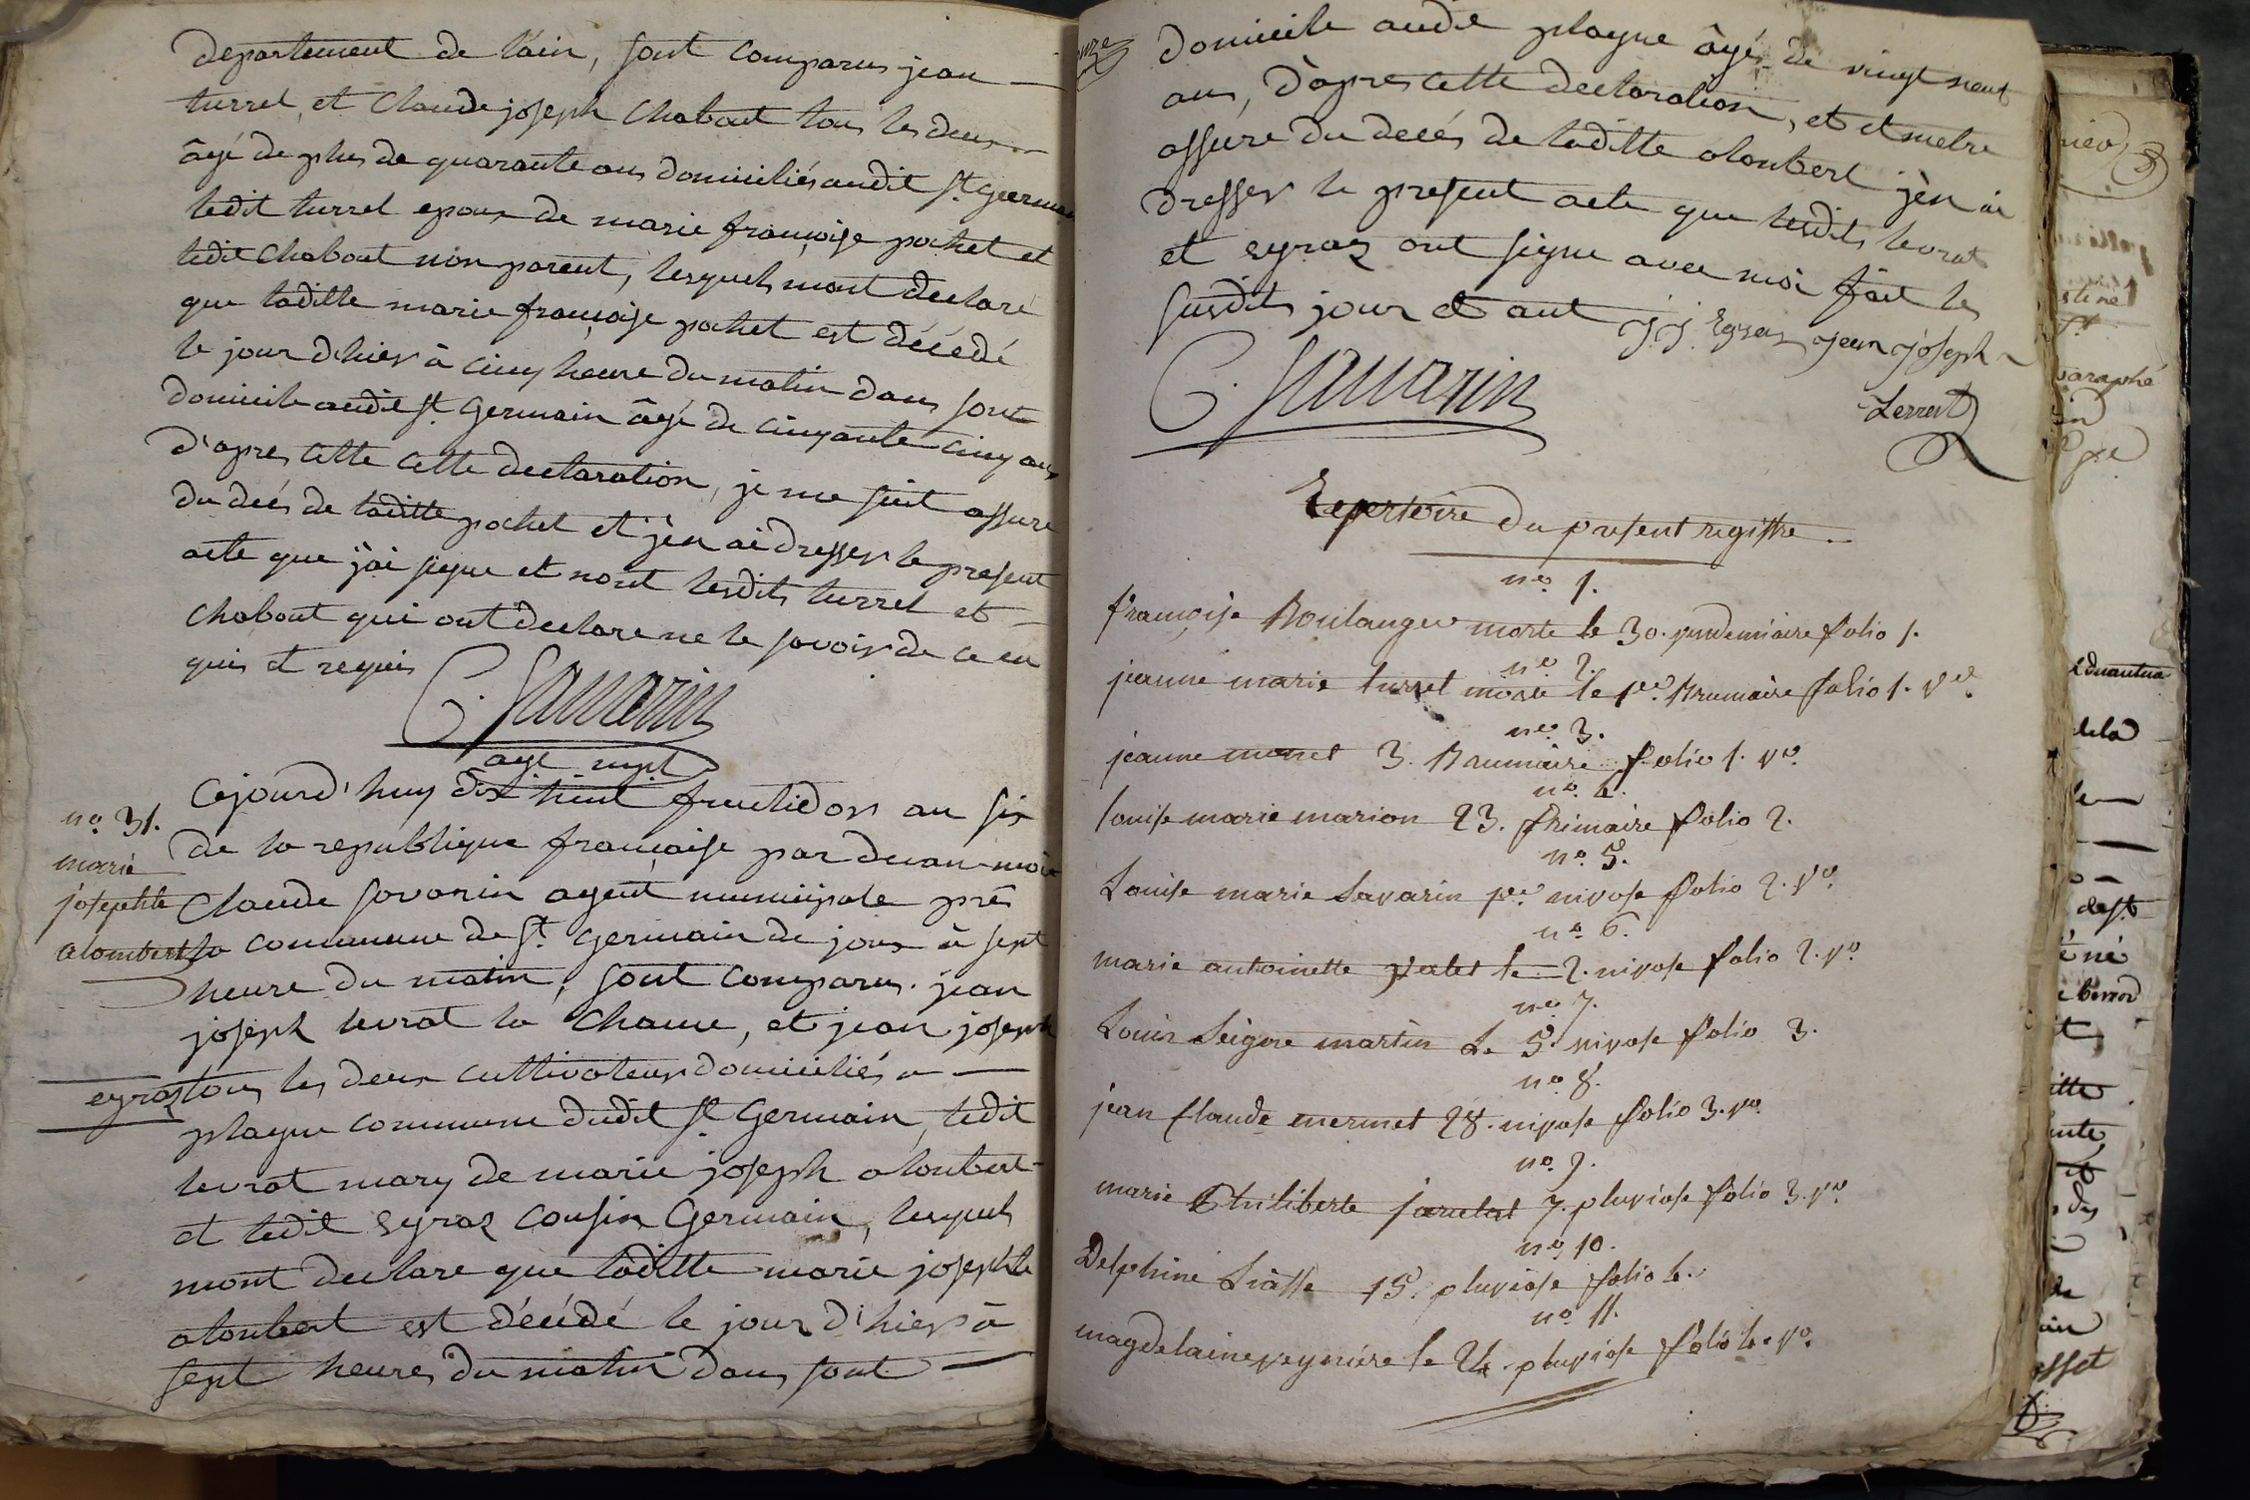 departement de l'ain, sont comparus jean
turrel, et Claude joseph Chabout tous les deux
âgé de plus de quarante ans domiciliés audit St. Germain
ledit turrel epoux de marie françoise pochet et
ledit Chabout non parent, lesquels mont declaré
que laditte marie françoise pochet est décédé
le jour d'hier à cinq heure du matin dans sont
domicile audit St. Germain âgé de cinquante cinq ans
d'apres cette cette declaration, je me suit assure
du decés de laditte pochet et j'en ai dresser le present
acte que j'ai signe et nont lesdits turrel et
Chabout qui ont declare ne le savoir de ce en
quis et requis
C. Savarin
agt mpl
no. 31.
marie
josephte
alombert
Cejourd'huy dix huit fructidor an six
de la republique française par devan moi
Claude Savarin agent municipale prés
la commune de St. Germain de joux à sept
heure du matin, sont comparus jean
joseph levrat la Chame, et jean joseph
eyraz tous les deux cultivateurs domiciliés a
plagne commune dudit St. Germain, ledit
levrat mary de marie joseph alonbert
et ledit eyraz cousin Germain, lesquels
mont declare que laditte marie josephte
alonbert est décédé le jour d'hier à
sept heures du matin dans sont
domicile audit plagne âgé de vingt neuf
ans, d'apres cette declaration, et et metre
assure du decés de laditte alonbert j'en ai
dresser le present acte que lesdits levrat
et eyraz ont signe avec moi fait les
susdits jour et ant
J. J. Eyraz jean joseph
Levrat
C. Savarin
Repertoire du present registre
no. 1.
françoise Boulanger morte le 30. vendemiaire folio 1.
no. 2.
jeanne marie turrel morte le 1er. Brumaire folio 1. vo.
no. 3.
jeanne monet 3. Brumaire folio 1. vo.
no. 4.
louise marie marion 23. frimaire folio 2.
no. 5.
Louise marie Savarin 1er nivose folio 2. vo.
no. 6.
marie antoinette valet le 2. nivose folio 2. vo
no. 7.
Louis Seigne martin Le 5. nivose folio 3.
no. 8.
jean Claude mermet 28. nivose folio 3. vo.
no. 9.
marie Philiberte 7. pluviose folio 3. vo
no. 10.
Delphine Liasse 15. pluviose folio 4.
no. 11.
magdelaine le 24. pluviose folio 4. vo.